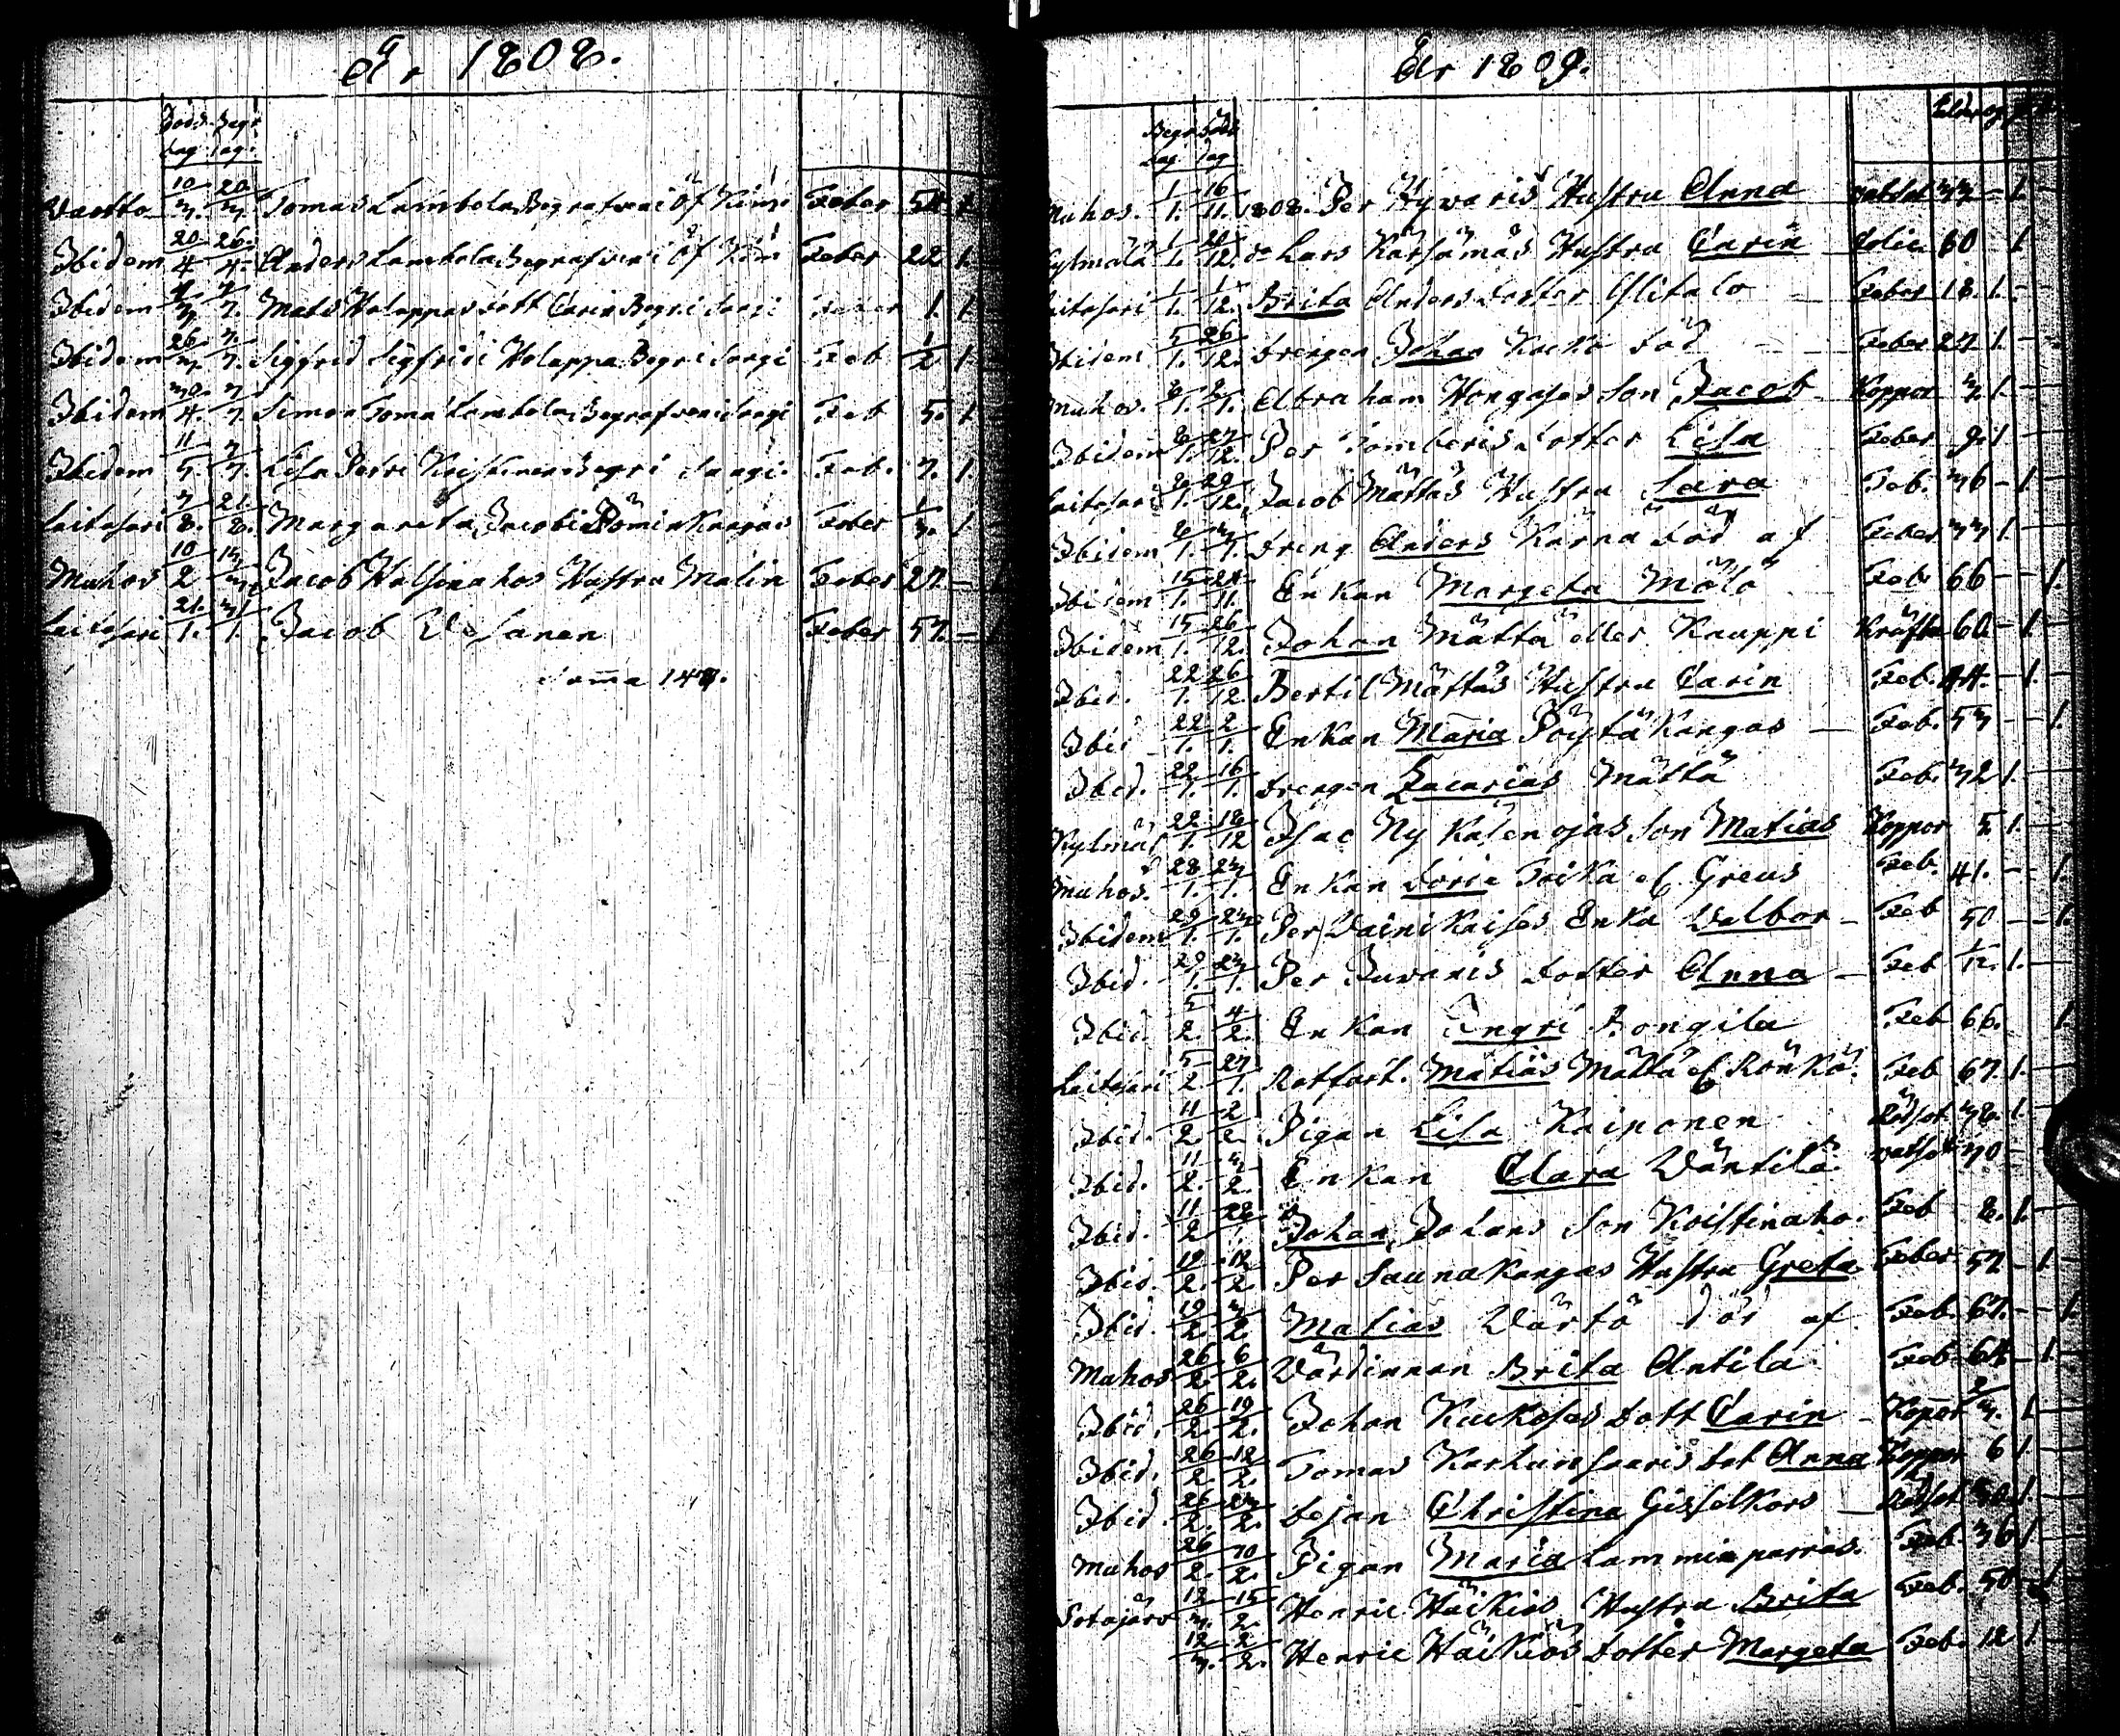 År 1808.
Döds dag Begr. dag.
Vaotto 10/3. 20/3. Tomas Lambela Begrafven i Öf Kimi Feber 54 1
Ibidem 20/4 26./4. Anders Lambela Begrafven i Öf Kim Feber 22 1.
Ibidem 7. Mats Holappas dott Carin Begr. i Sorgi Feber 1. 1
Ibidem 26/3. 7./7. Sigfrid Sigfridi Holappa Begr i Sorgi Feb 1/2 1.
Ibidem 30./4. 7/7. Simon Toma Lambela Begrafven i Sorgi Feb 5. 1
Ibidem 11/5. 7/7. Lisa Petri Kristinen Begr i Sorgi. Feb. 3. 1.
Laitasari 7/8. 21./8. Margareta Jacobi Kangas Feber 1/3. 1.
Muhos 10/2 Jacob Halsinahos Hustru Malin Feber 27 — 1
Laitasari 21./1. Jacob Vesanen Feber 57. — 1
Som̄a
År 1809.
Begr dag Döds dag
Ålder
Muhos. 1/1. 16/11. 1808. Per Hyvaris Hustru Anna vatsot 33 — 1.
Kylmälä 1/1. 21/12. do Lars Kärsämäs Hustru Carin Colic 60 — 1.
Laitasari 1/1. 1/12. Brita Anders dotter Ylitalo — Feber 18. 1.
Ibidem 5/1. 26/12. Drengen Johan Kocko död — Feber 27 1.
Muhos. 6/1. 2/1. Abraham Hongases Son Jacob Koppor 3. 1.
Ibidem 6/1. 27/12. Per Tomberis dotter Lisa Feber 9. 1
Laitasari 6/1. 29/12. Jacob Mättäs Hustru Sara Feb. 36 — 1.
Ibidem 6/1. 3/1. Dreng Anders Kärnä död af Feber 33 1.
Ibidem 15/1. 28/11. Enkan Margeta Mölö Feb. 66 — 1.
Ibidem 15/1. 26/12. Johan Mättä eller Kauppi Kräfta 60 — 1.
Ibid. 22/1. 26/12. Bertil Mättäs Hustru Carin Feb. 44. — 1.
Ibid 22/1. 2/1. Enkan Maria Pöytä Kangas — Feb. 53 — 1.
Ibid. 22/1. 16/1. Drengen Zacarias Mättä Feb. 32 1.
Kylmäl 22/1. 18/12 Isac Ny Kälenojas Son Matias Koppor 5 1.
Muhos. 28/1. 23/1. Enkan Toika ell. Greus Feb. 41. — 1.
Ibidem 29/1. 23/1. Per Vainikaises Enka Valbor — Feb 50 — 1.
Ibid. 29/1. 23/1. Per Juvanis dotter Anna — Feb 1/12. 1.
Ibid. 5/2. 4/2. Enkan Ingri Pongila Feb 66. 1.
Laitasari 5/2. 27/1. Rotfatt. Matias Mättä ell Rönkö. Feb 67. 1.
Ibid. 11/2. 2/2. Pigan Lisa Kaiponen Rödsot 38. 1.
Ibid. 11/2. 3/2. Enkan Clara Väntilä. vatsot 70
Ibid. 11/2 28/1. Johan Johans Son Koistinaho. Feb 8. 1.
Ibid. 19/2. 12/2. Per Saunakangas Hustru Greta Feber 57 — 1.
Ibid. 19/2. 3/2. Matias Värtö död af Feb. 67. — 1.
Muhos 26/2. 6/2. Värdinnan Brita Antila Feb 64 — 1.
Ibid. 26/2. 19/2. Johan Kuckoses dott Carin — Kopor 2/3. 1
Ibid. 26/2. 12/2. Tomas Karhunsaaris dot Anna Koppor 6 1
Ibid. 26/2. 23/2. Dejan Christina Gisselkors — Rödsot 1
Muhos 26/2. 10/2. Pigan Maria Lamminparras. Feb. 36 1
Sotajärv 12/3. 15/2. Henric Häikiös Hustru Brita Feb. 50 — 1
12/3. 2/2. Henric Häikiös dotter Margeta Feb. 12 1